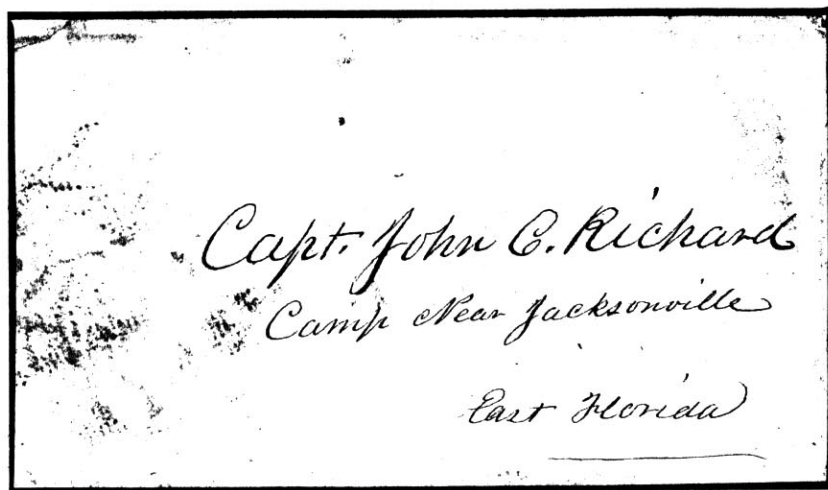 Capt. John C. Richard
Camp Near Jacksonville
East Florida